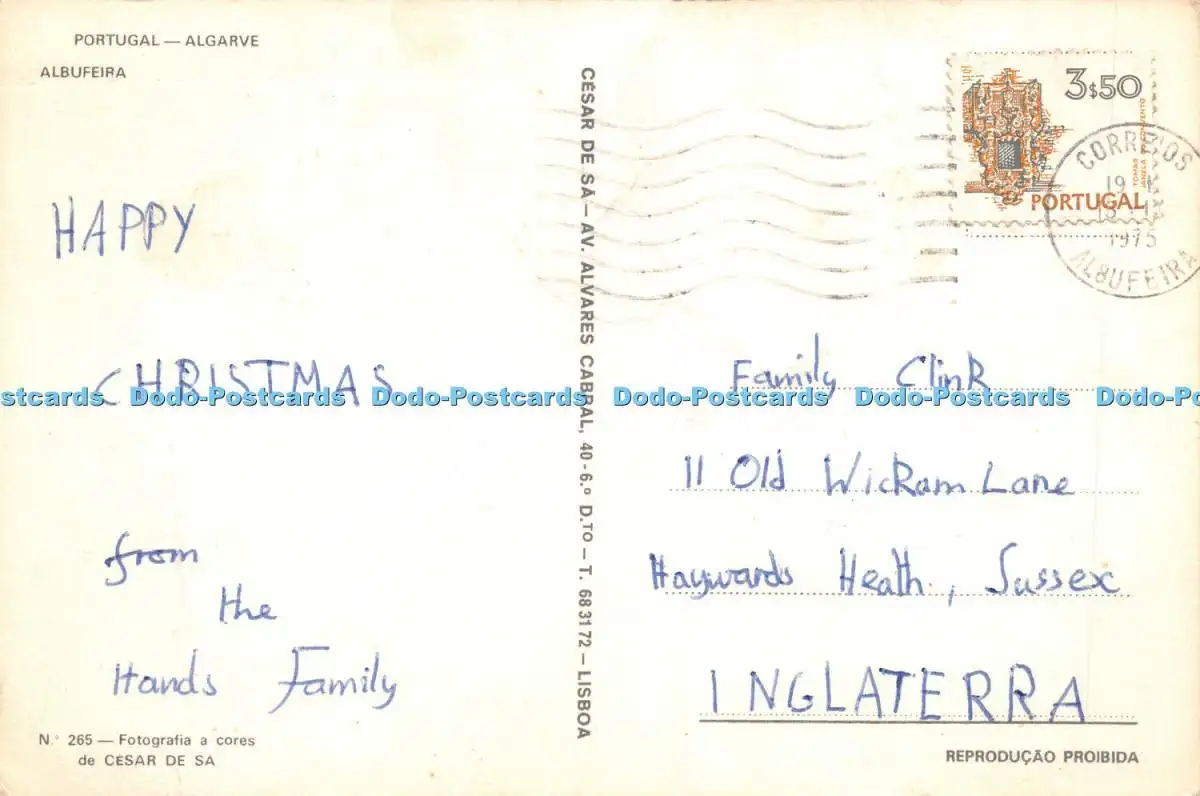 PORTUGAL — ALGARVE
ALBUFEIRA
HAPPY
CHRISTMAS
from
the
Hands Family
N.º 265 — Fotografia a cores
de CÉSAR DE SA
CÉSAR DE SA — AV. ALVARES CABRAL, 40-6.º D.TO — T. 683172 — LISBOA
3$50
PORTUGAL
CORREIOS
19
1975
ALBUFEIRA
Family Clink
11 Old Wickam Lane
Haywards Heath, Sussex
INGLATERRA
REPRODUÇÃO PROIBIDA
stcards Dodo-Postcards Dodo-Postcards Dodo-Postcards Dodo-Postcards Dodo-Po